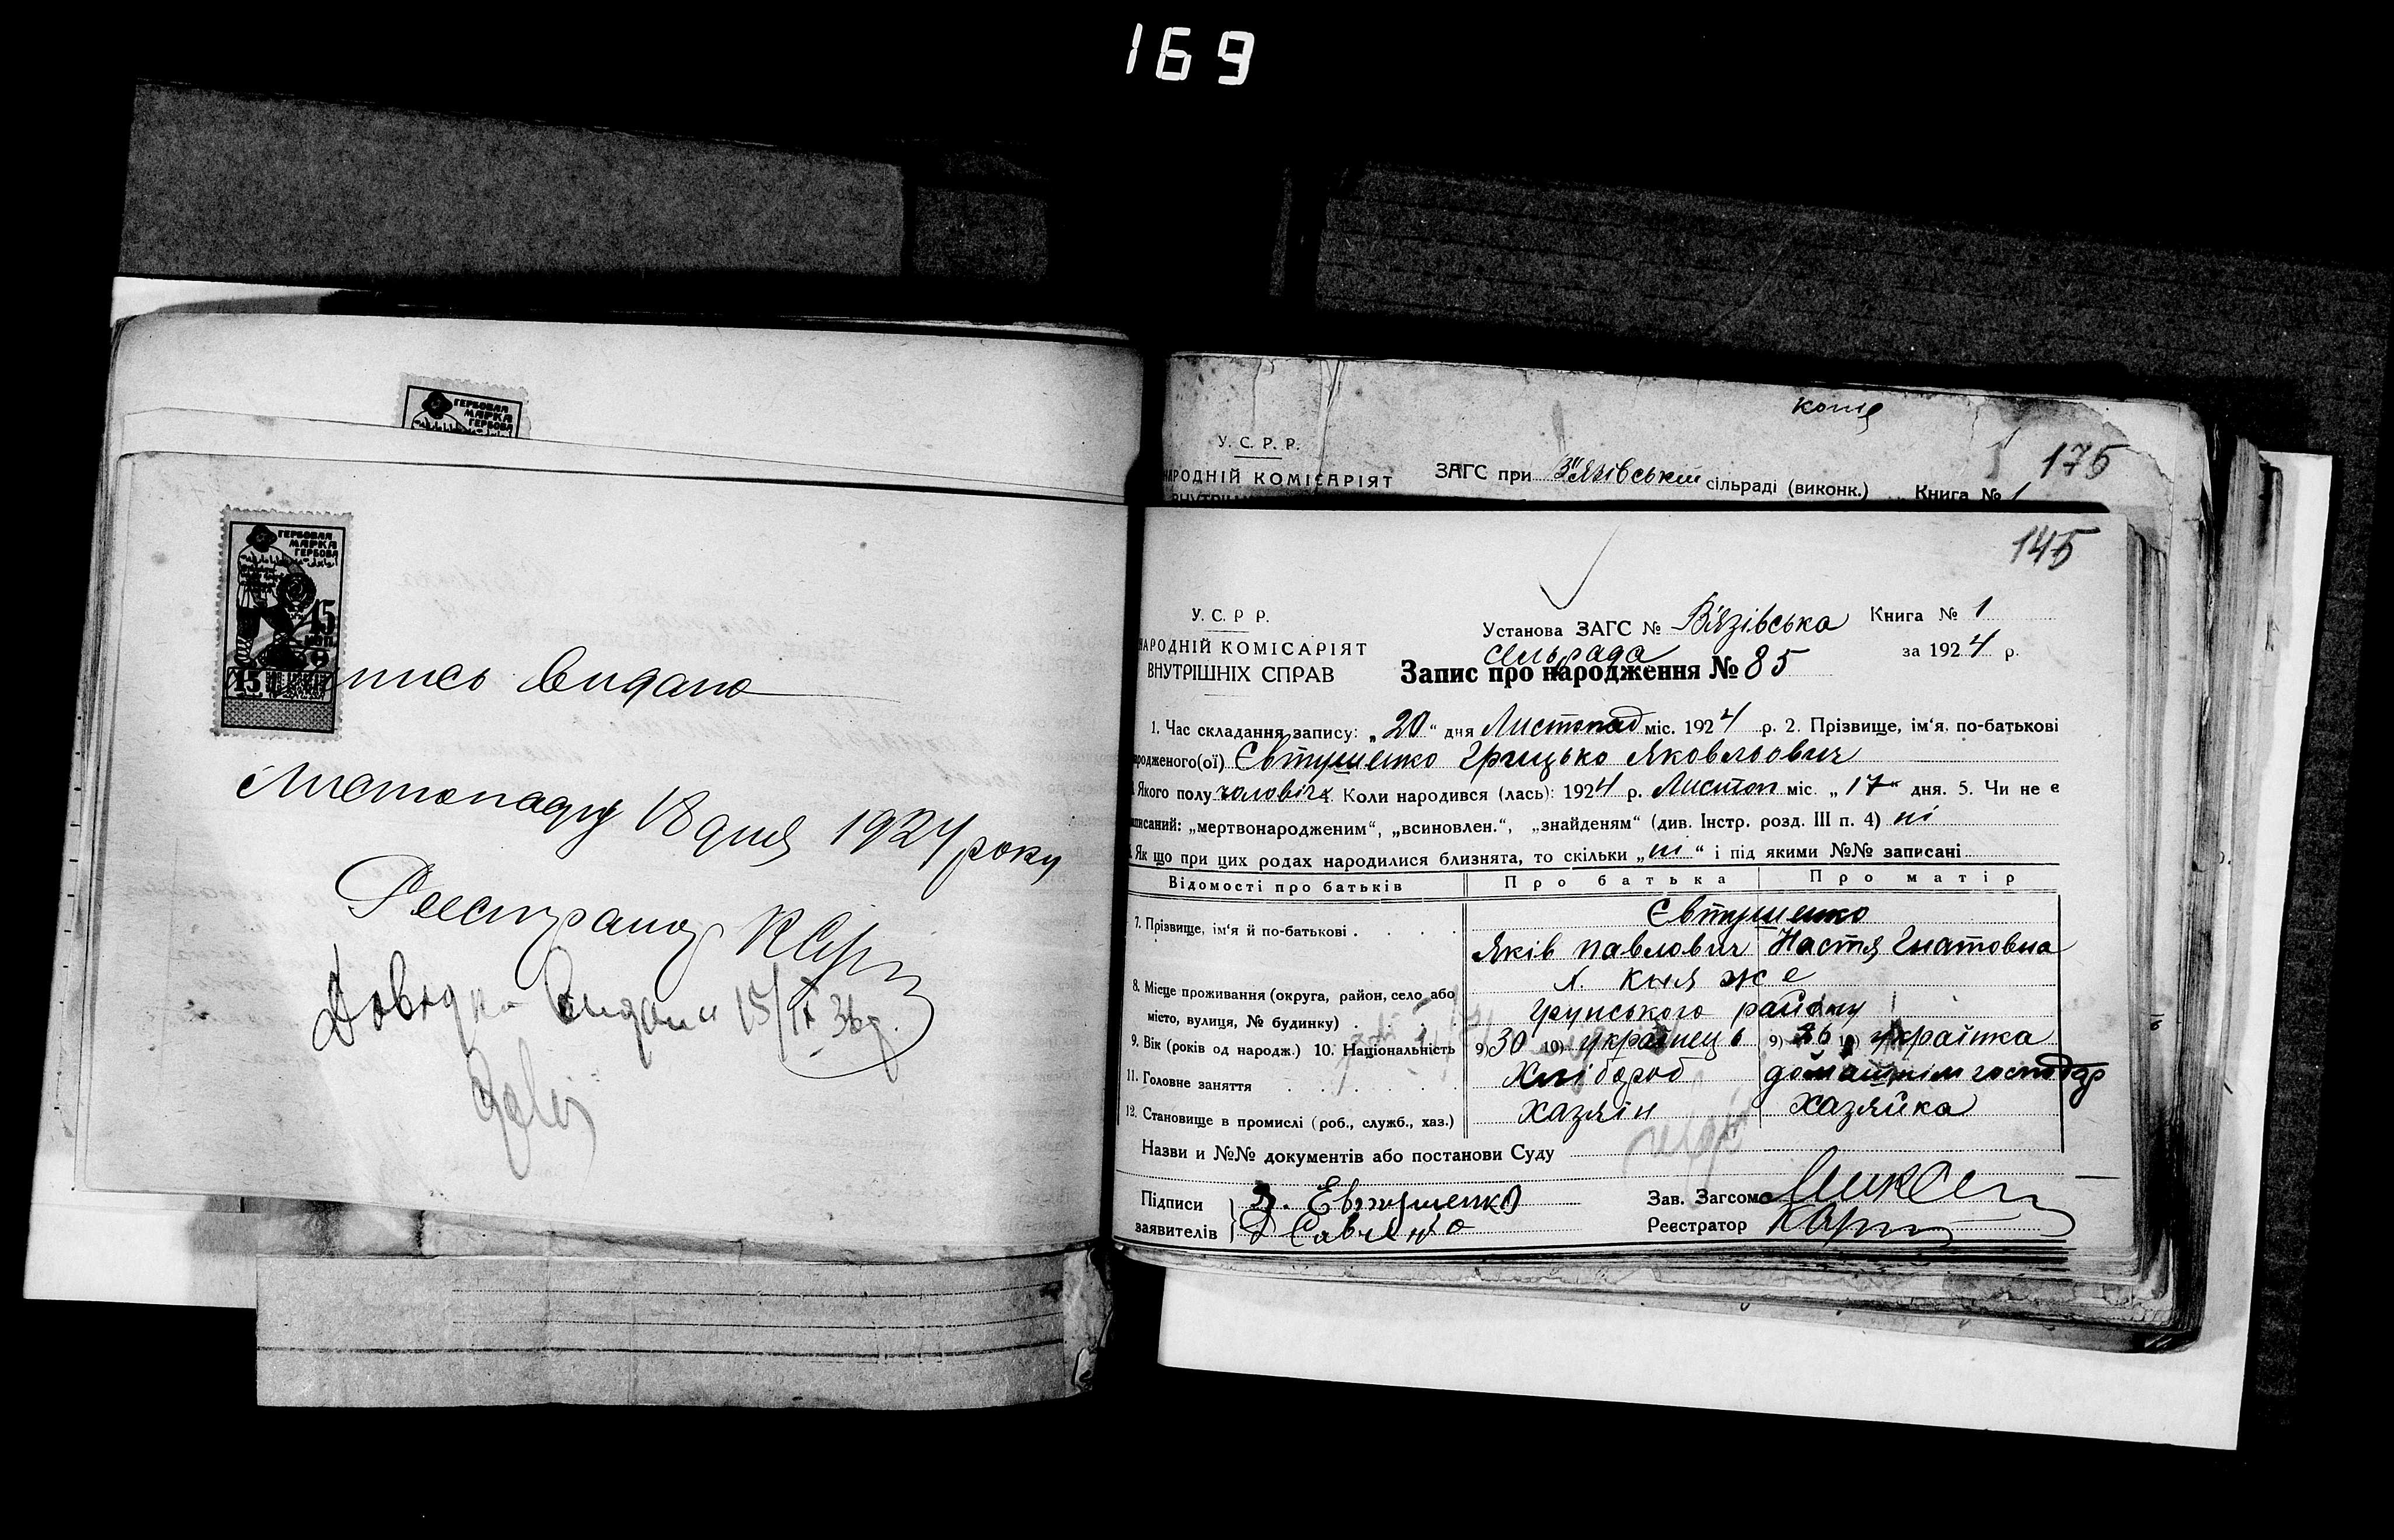 169
ГЕРБОВАЯ
МАРКА
ГЕРБОВА
ГЕРБОВАЯ
МАРКА
ГЕРБОВА
15
КОП
15
пись видано
Листопаду 18 дня 1924 року
Реєстратор
Довідка видана 15/IX 36р.
копія
У. С. Р. Р.
НАРОДНІЙ КОМІСАРІЯТ
ЗАГС при В'язівській сільраді (виконк.) Книга № 1
175
145
У. С. Р Р.
НАРОДНІЙ КОМІСАРІЯТ
ВНУТРІШНІХ СПРАВ
Установа ЗАГС № В'язівська Книга № 1
сільрада
за 1924 р.
Запис про народження № 85
1. Час складання запису: „20“ дня Листопад міс. 1924 р. 2. Прізвище, ім'я, по-батькові
родженого(ої) Євтушенко Грицько Яковльович
Якого полу чоловіч. 4. Коли народився (лась): 1924 р. Листоп міс. „17“ дня. 5. Чи не є
писаний: „мертвонародженим“, „всиновлен.“, „знайденям“ (див. Інстр. розд. III п. 4) ні
Як що при цих родах народилися близнята, то скільки „ні“ і під якими №№ записані
Відомості про батьків Про батька Про матір
7. Прізвище, ім'я й по-батькові
Євтушенко
Яків Павлович Настя Гнатовна
8. Місце проживання (округа, район, село або
місто, вулиця, № будинку)
х. Княже
Грунського району
9. Вік (років од народж.) 10. Національність 9) 30 10) українець 9) 26 10) українка
11. Головне заняття Хлібороб домашнім господар
12. Становище в промислі (роб., служб., хаз.) Хазяїн Хазяйка
Назви и №№ документів або постанови Суду
Підписи
заявителів
Я. Евтушенко
Зав. Загсом
Реєстратор